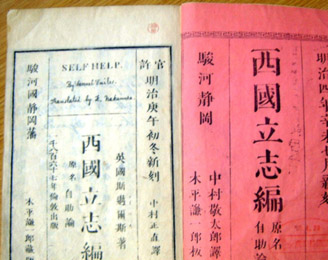 SELF HELP.
By Samuel Smiles.
Translated by K. Nakamura
官許
明治庚午初冬新刻
中村正直譯
英國斯邁爾斯著
西國立志編
原名自助論
一千八百六十七年倫敦出版
駿河國静岡藩
木平謙一郎藏
明治四
西國立志編
原名
自助論
中村敬太郎譯
駿河静岡
木平謙一郎板